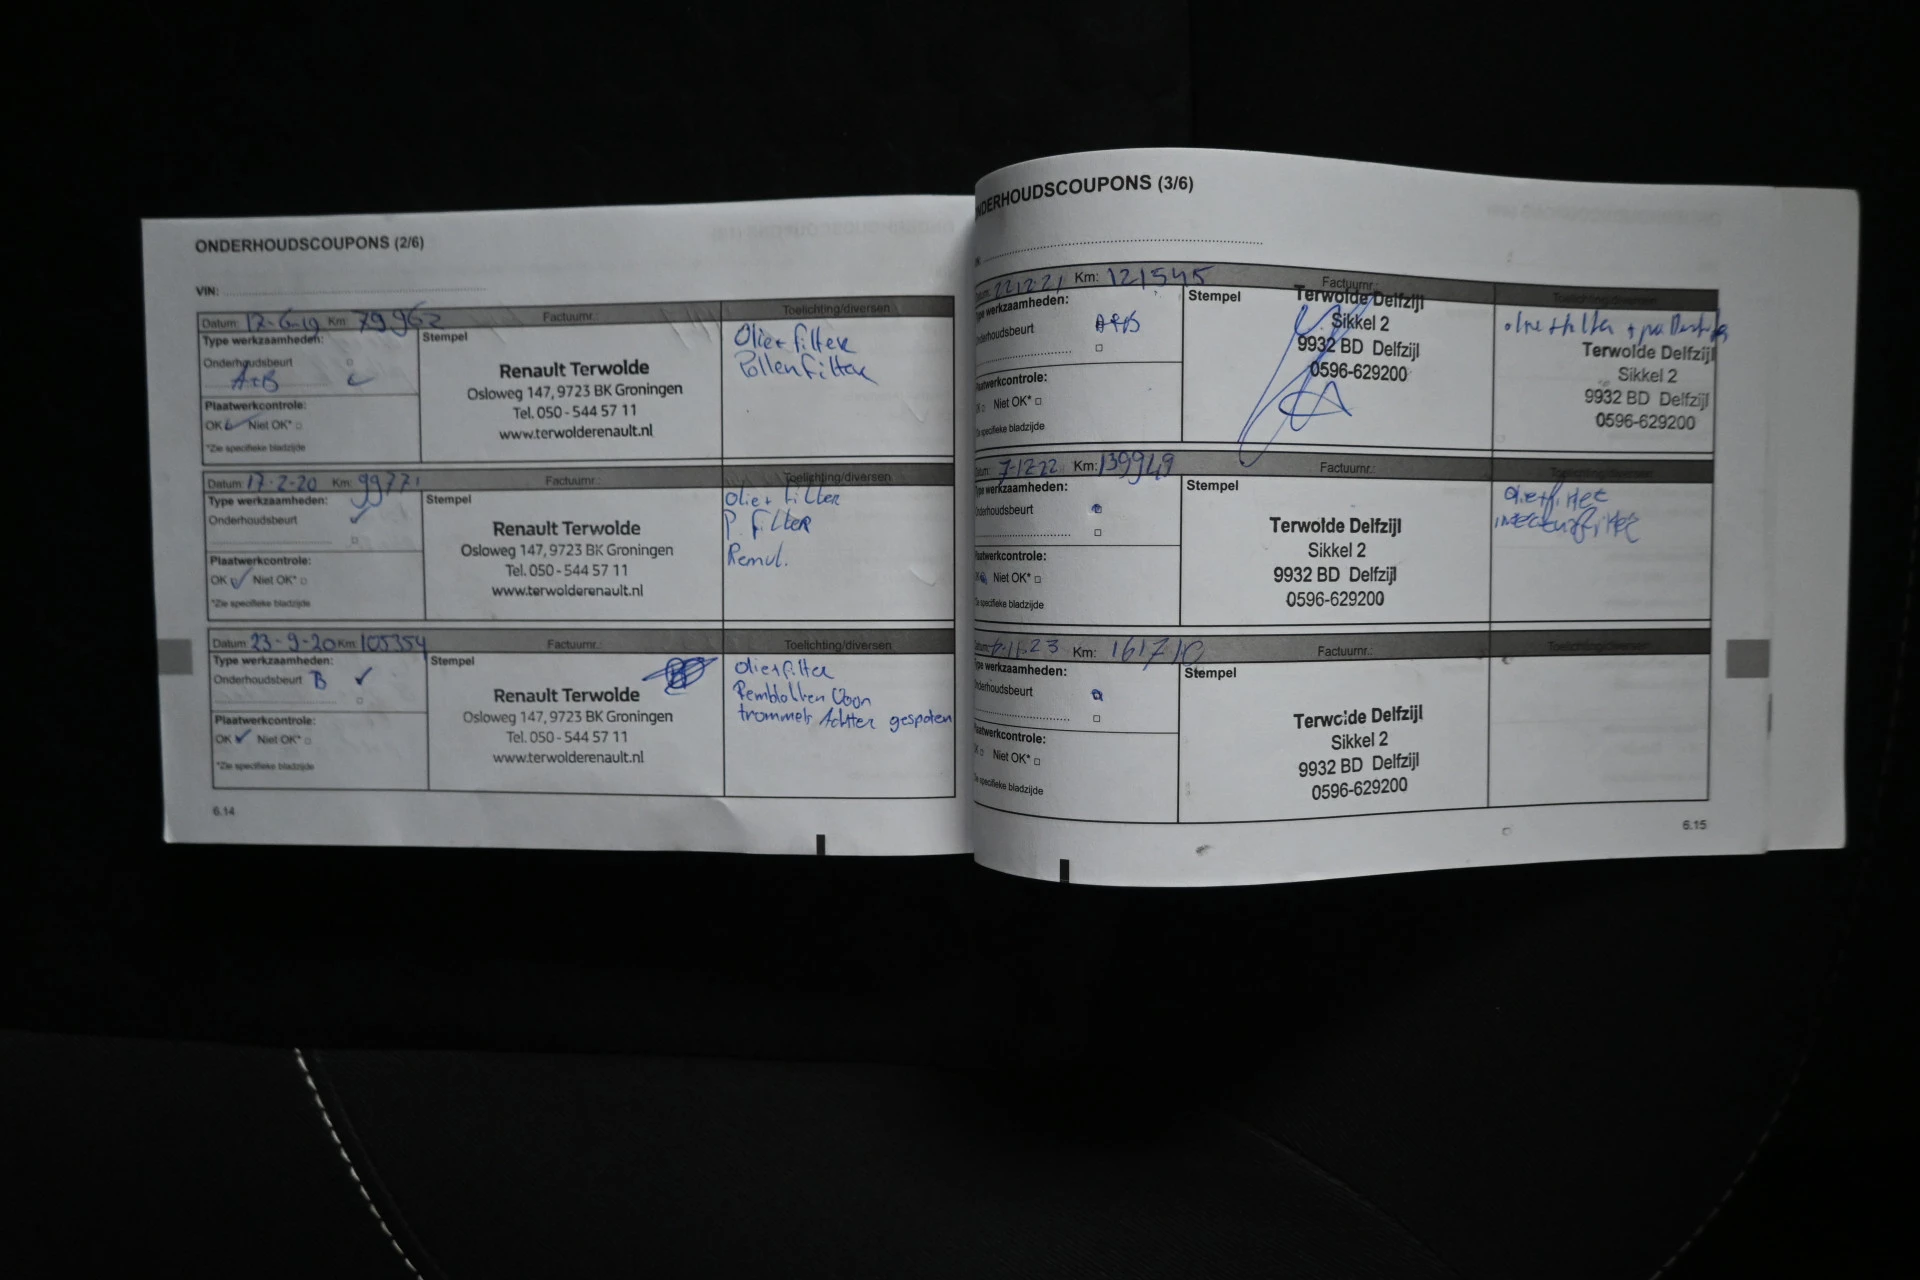 ONDERHOUDSCOUPONS (2/6)
VIN:
Datum: 17-6-19 Km: 79962 Factuurnr.: Toelichting/diversen
Type werkzaamheden:
Onderhoudsbeurt
A+B
Plaatwerkcontrole:
OK Niet OK*
*Zie specifieke bladzijde
Stempel
Renault Terwolde
Osloweg 147, 9723 BK Groningen
Tel. 050 - 544 57 11
www.terwolderenault.nl
Olie+filter
Pollenfilter
Datum: 17-2-20 Km: 99771 Factuurnr.: Toelichting/diversen
Type werkzaamheden:
Onderhoudsbeurt
Plaatwerkcontrole:
OK Niet OK*
*Zie specifieke bladzijde
Stempel
Renault Terwolde
Osloweg 147, 9723 BK Groningen
Tel. 050 - 544 57 11
www.terwolderenault.nl
Olie+filter
P. filter
Remvl.
Datum: 23-9-20 Km: 105354 Factuurnr.: Toelichting/diversen
Type werkzaamheden:
Onderhoudsbeurt B
Plaatwerkcontrole:
OK Niet OK*
*Zie specifieke bladzijde
Stempel
Renault Terwolde
Osloweg 147, 9723 BK Groningen
Tel. 050 - 544 57 11
www.terwolderenault.nl
Olie+filter
Remblokken Voor
trommels Achter
6.14
NDERHOUDSCOUPONS (3/6)
22-12-21 Km: 121545 Factuurnr.: Toelichting/diversen
Type werkzaamheden:
Onderhoudsbeurt A+B
Plaatwerkcontrole:
Niet OK*
Zie specifieke bladzijde
Stempel
Terwolde Delfzijl
Sikkel 2
9932 BD Delfzijl
0596-629200
Terwolde Delfzijl
Sikkel 2
9932 BD Delfzijl
0596-629200
7-12-22 Km: 139949 Factuurnr.: Toelichting/diversen
Type werkzaamheden:
Onderhoudsbeurt
Plaatwerkcontrole:
Niet OK*
Zie specifieke bladzijde
Stempel
Terwolde Delfzijl
Sikkel 2
9932 BD Delfzijl
0596-629200
olie+filter
Km: 161710 Factuurnr.: Toelichting/diversen
Type werkzaamheden:
Onderhoudsbeurt
Plaatwerkcontrole:
Niet OK*
Zie specifieke bladzijde
Stempel
Terwolde Delfzijl
Sikkel 2
9932 BD Delfzijl
0596-629200
6.15